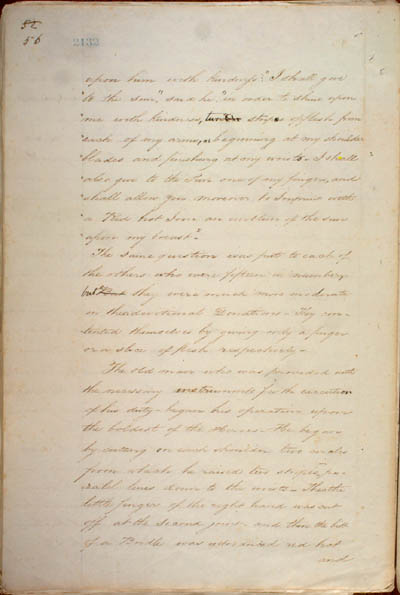 52
56
2132
upon him with kindness; "I shall give
"to the sun", said he, "in order to shine upon
"me with kindness, strips of flesh from
"each of my arms, beginning at my shoulder
"blades and finishing at my wrists. I shall
"also give to the Sun one of my fingers, and
"shall allow you moreover to Imprint with
"a Red hot Iron an of the sun
"upon my breast".
The same question was put to each of
the others who were fifteen in number
but they were much more moderate
in their Donations - They con-
tented themselves by giving only a finger
or a slice of flesh respectively -
The old man who was provided with
the necessary instruments for the execution
of his duty - began his operation upon
the boldest of the - He began
by cutting on each shoulder two
from which he raised two strips, pa-
ralel lines down to the wrists - The
little finger of the right hand was cut
off at the second joint - and then the bit
of a Bridle was red hot
and